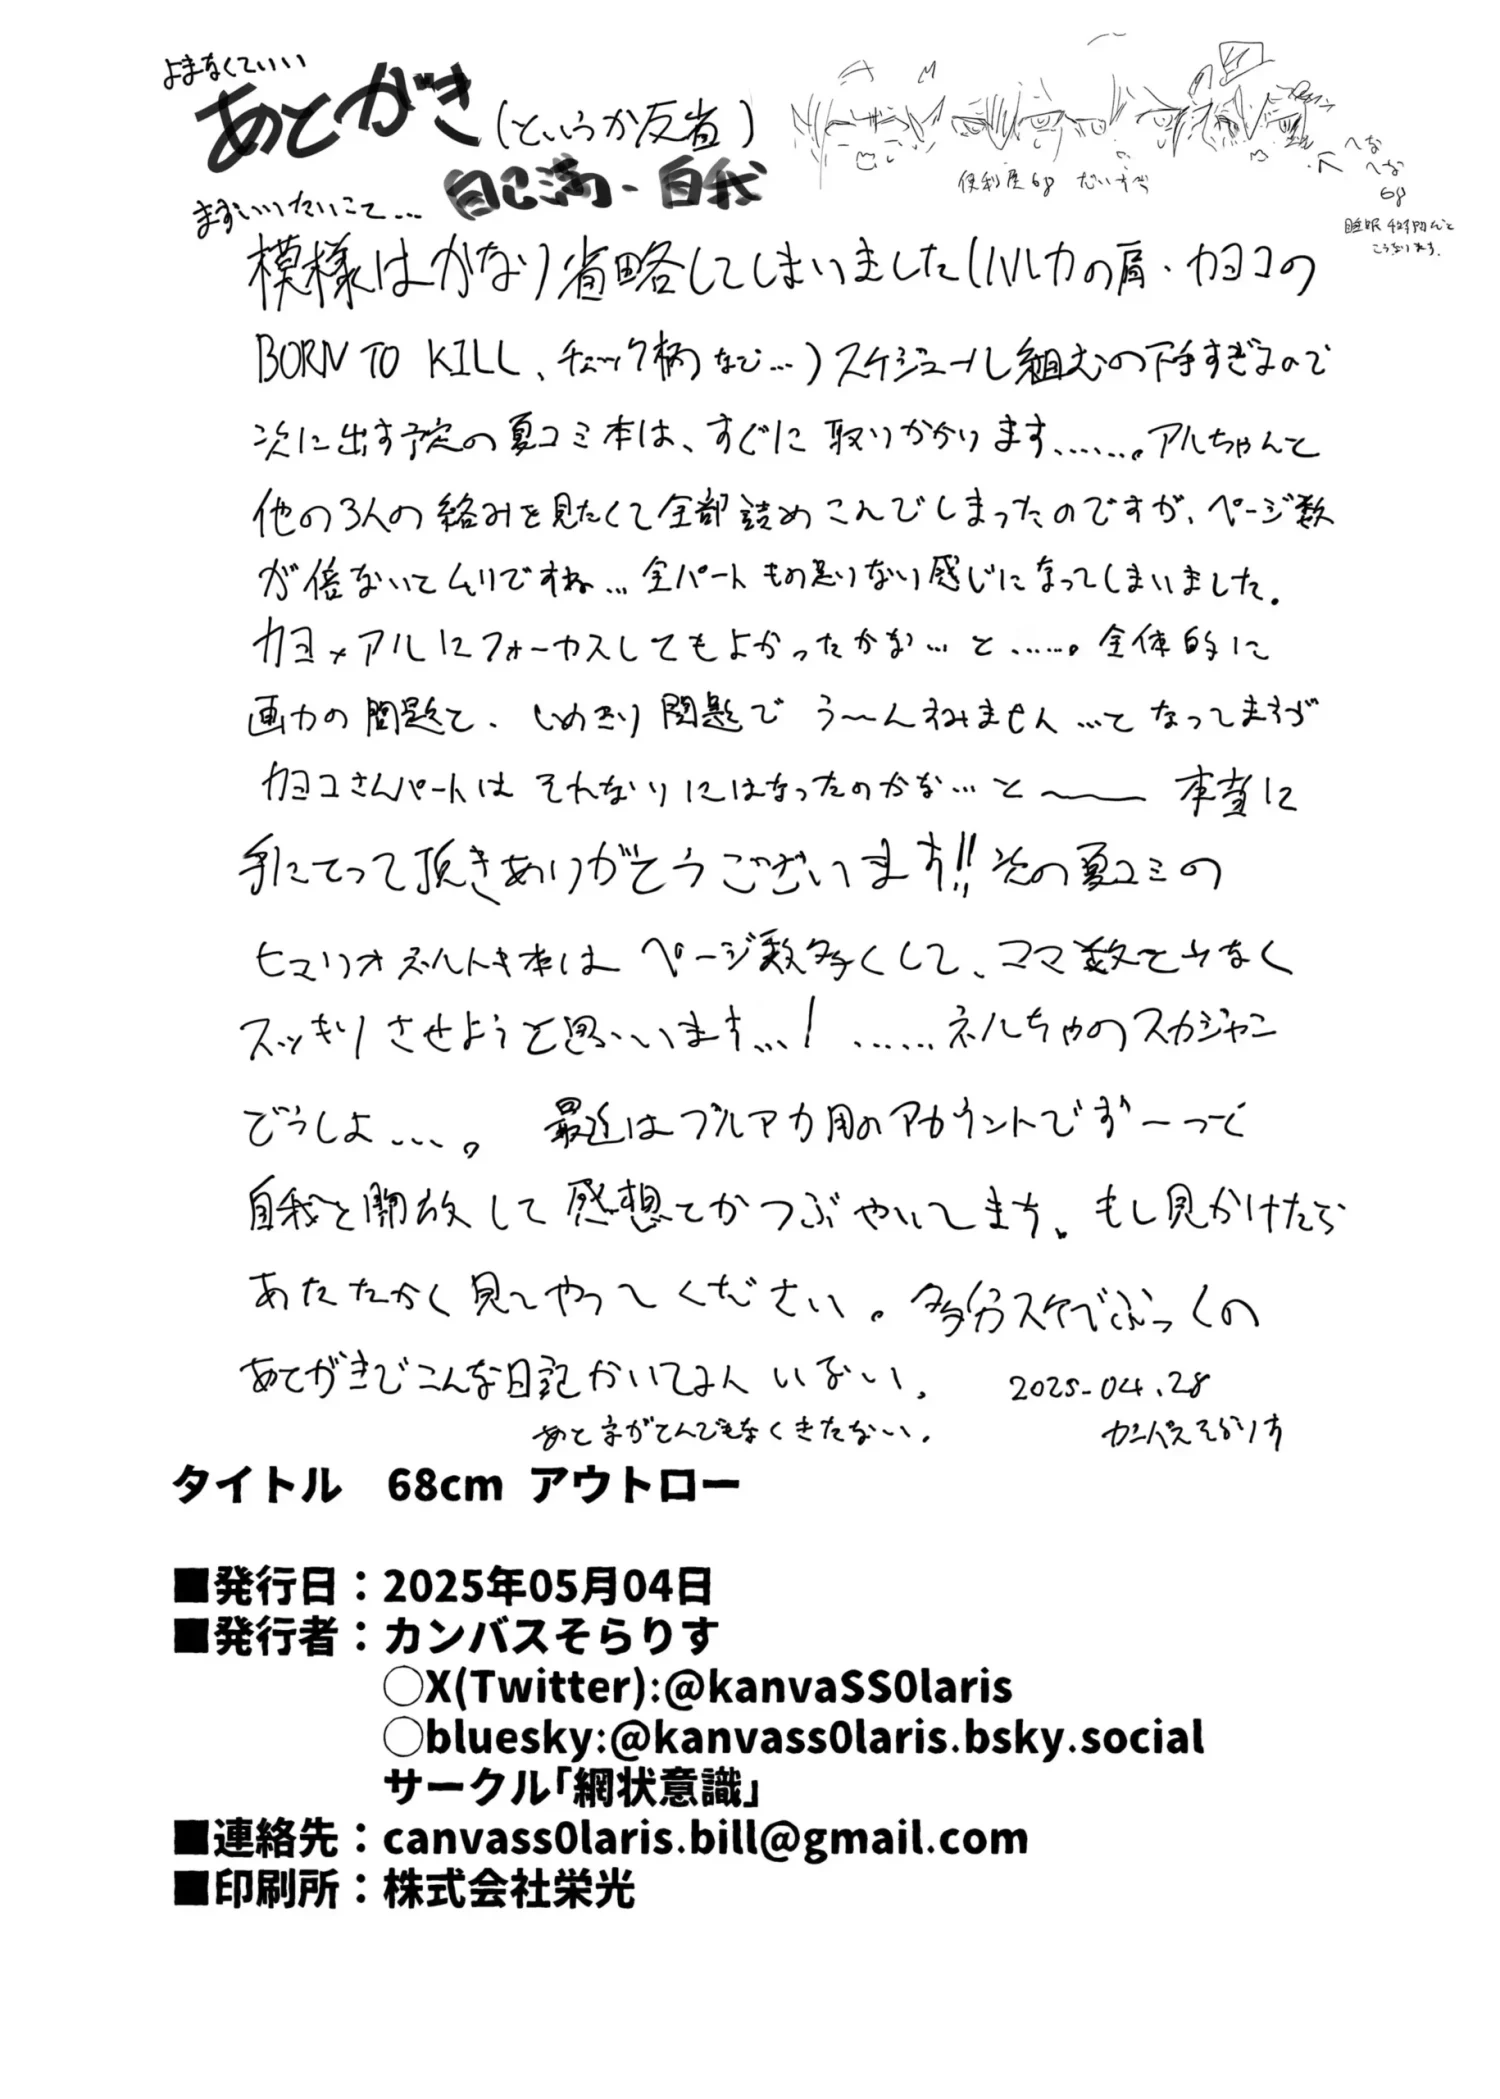 よまなくていい
あとがき(というか反省)
自己満-自我
まずいいたいこと…
便利屋68 だいすき
へな
へな
68
睡眠時間ないと
こうなります。
模様はかなり省略してしまいました(ハルカの肩・カヨコの
BORN TO KILL、チェック柄など…)スケジュールし組むの下手すぎるので
次に出す予定の夏コミ本は、すぐに取りかかります……。アルちゃんと
他の3人の絡みを見たくて全部詰めこんでしまったのですが、ページ数
が倍ないとムリですね…全パートもの足りない感じになってしまいました。
カヨ×アルにフォーカスしてもよかったかな…と……。全体的に
画力の問題と、しめきり問題でう〜んすみません…となってますが
カヨコさんパートはそれなりにはなったのかな…と〜 本当に
手にとって頂きありがとうございます!!次の夏コミの
ヒマリオネルトキ本はページ数多くして、コマ数を少なく
スッキリさせようと思います…! ……ネルちゃのスカジャン
どうしよ…。 最近はブルアカ用のアカウントでず〜っと
自我を開放して感想とかつぶやいてます。もし見かけたら
あたたかく見てやってください。多分スケベぶっくの
あとがきでこんな日記かいてる人いない。 2025-04.28
あと字がとんでもなくきたない。 カンバスそらりす
タイトル 68cm アウトロー
■発行日：2025年05月04日
■発行者：カンバスそらりす
○X(Twitter):@kanvaSS0laris
○bluesky:@kanvass0laris.bsky.social
サークル「網状意識」
■連絡先：canvass0laris.bill@gmail.com
■印刷所：株式会社栄光